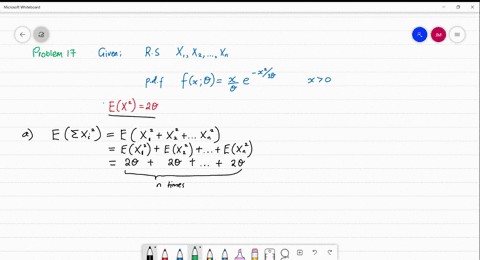 Microsoft Whiteboard
JM
Problem 17 Given: R.S X₁, X₂, ..., Xₙ
pdf f(x;θ) = x/θ e^(-x²/2θ) x>0
E(X²) = 2θ
a) E(ΣXᵢ²) = E(X₁² + X₂² + ... Xₙ²)
= E(X₁²) + E(X₂²) + ... + E(Xₙ²)
= 2θ + 2θ + ... + 2θ
n times